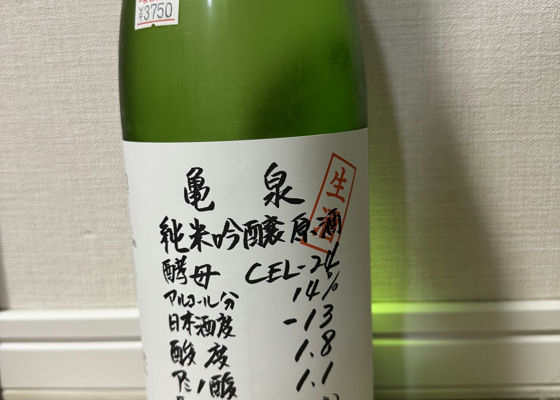 ¥3750
亀泉
生酒
純米吟醸原酒
酵母 CEL-24
アルコール分 14%
日本酒度 -13
酸度 1.8
アミノ酸 1.1